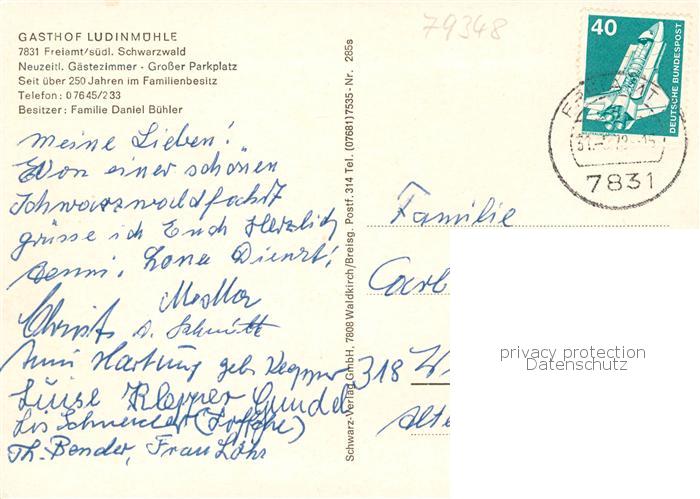 GASTHOF LUDINMÜHLE
7831 Freiamt/südl. Schwarzwald
Neuzeitl. Gästezimmer - Großer Parkplatz
Seit über 250 Jahren im Familienbesitz
Telefon: 07645/233
Besitzer: Familie Daniel Bühler
meine Lieben!
Von einer schönen
Schwarzwaldfahrt
grüsse ich Euch Herzlich
Lona Dienst!
Christ
Anni Hartung geb. Klepper
Luise Klepper
Schneider
Th. Bender, Frau Löhr
Schwarz-Verlag GmbH, 7808 Waldkirch/Breisg. Postf. 314 Tel. (07681) 7535 - Nr. 285s
79348
40
DEUTSCHE BUNDESPOST
7831
Familie
Carl
318 W
Alte
privacy protection
Datenschutz